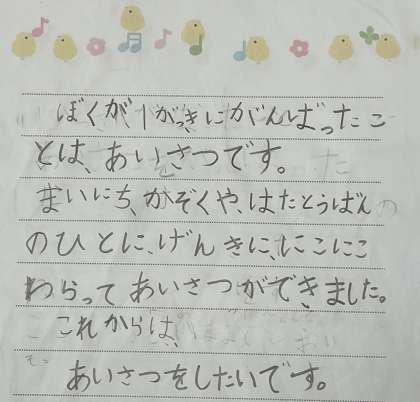 ぼくが、1がっきにがんばったこ
とは、あいさつです。
まいにち、かぞくや、はたとうばん
のひとに、げんきに、にこにこ
わらって あいさつができました。
これからは、
あいさつをしたいです。